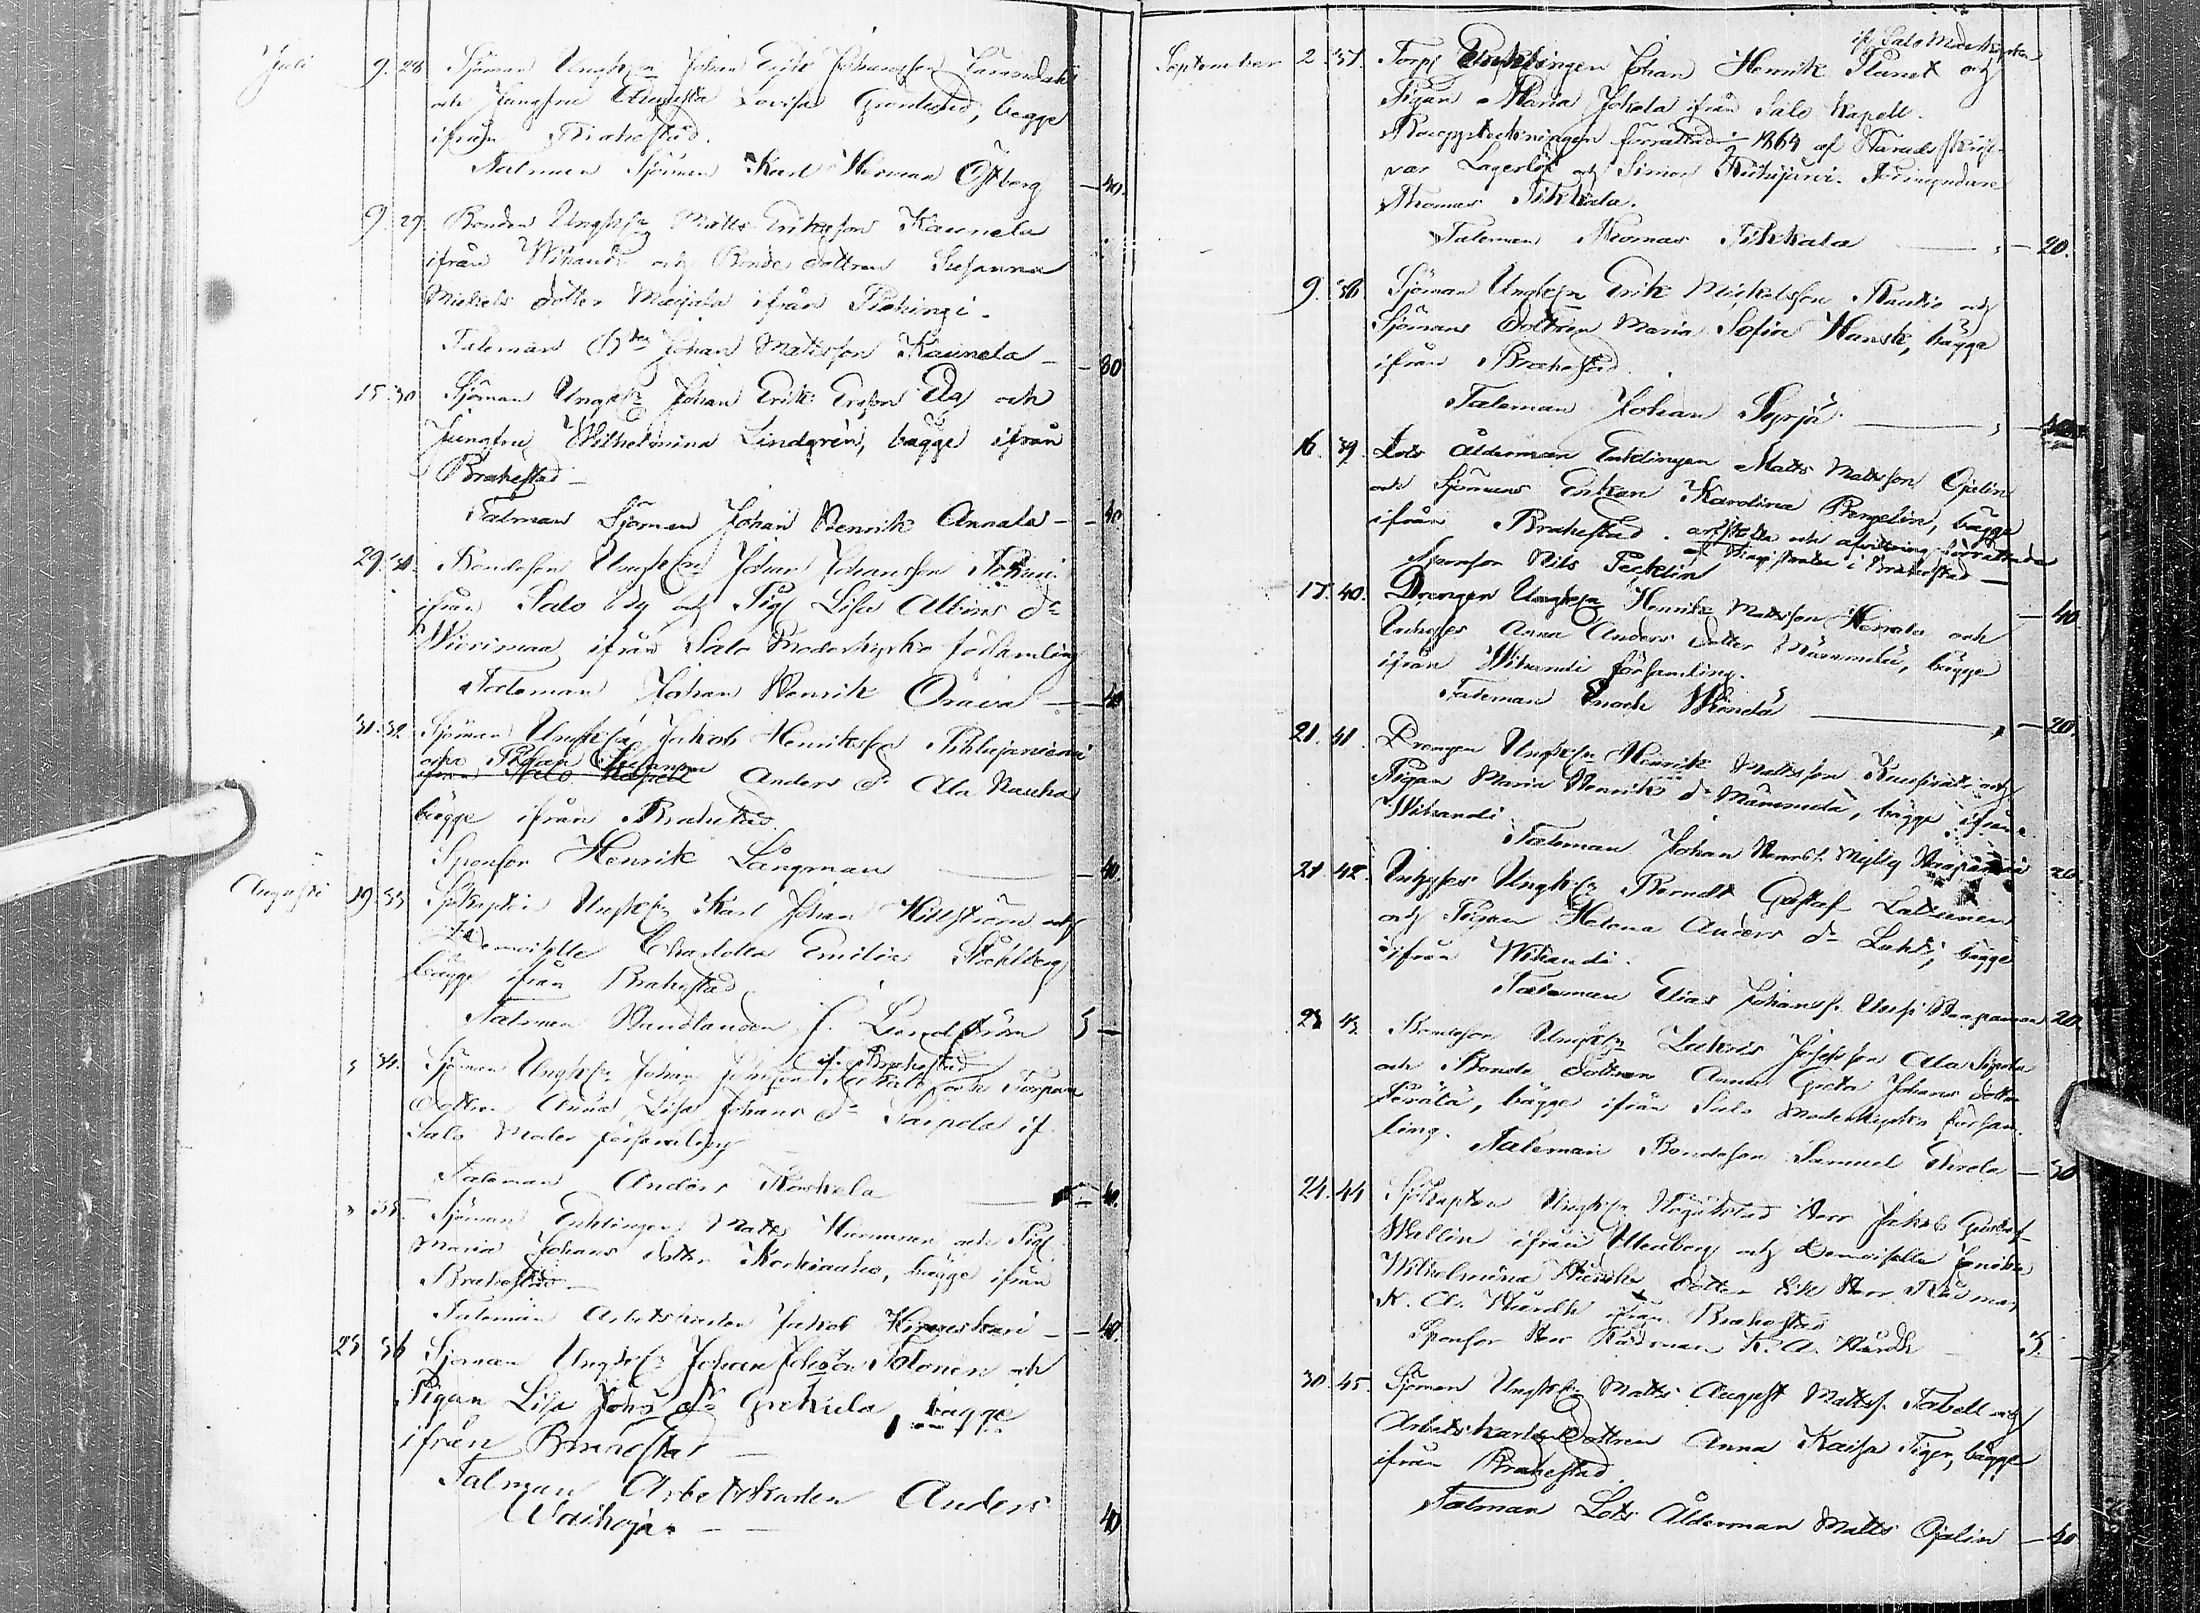 Juli 9. 28 Sjöman Ungk. Johan Erik Johansson
och Jungfru Augusta Lovisa Grönlund, begge
ifrån Brahestad.
Talman Sjöman Karl Herman Östberg — 40.
9. 29. Bonden Ungk. Matts Eriksson Kaunela
ifrån Wihandi och Bonde dottren Susanna
Mickels dotter Marjala ifrån Piehingi.
Taleman Johan Mattsson Kaunela — 30
15 30 Sjöman Ungk. Johan Erik Ersson Ela och
Jungfru Wilhelmina Lindgrén, bägge ifrån
Brahestad —
Talman Sjöman Johan Henrik Annala — 40
29. 31. Bondeson Ungk. Johan Johansson
ifrån Salo och Pig. Lisa dr
ifrån Salo Moderkyrko församling
Taleman Johan Henrik Orava — 40
31. 32 Sjöman Ungk. Jakob Henriksson Pihlajaniemi
och Pigan Susanna
ifrån Salo Kapell Anders dr Ala Rauha
bägge ifrån Brahestad
Sponsor Henrik Långman — 40.
Augusti 19. 33 Sjökapten Ungk. Karl Johan Hillström och
Demoiselle Charlotta Emilia Ståhlberg
bägge ifrån Brahestad.
Talman Handlanden J. Lundström 3 —
34. Sjöman Ungk. Johan Johansson och Torpare
if. Brahestad
dottren Anna Lisa Johans dr Saipola if.
Salo Moder församling
Taleman Anders Koskela — 40.
35. Sjöman Enklingen Matts Hurnanen och Pig.
Maria Johans dotter Korkiaaho, bägge ifrån
Brahestad —
Taleman Arbetskarlen Jakob — 40.
25 36 Sjöman Ungk. Johan Johsson Tolonen och
Pigan Lisa Johs dr Grekula, bägge
ifrån Brahestad —
Talman Arbetskarlen Anders
— 40
if. Salo Moderkyrka
September 2. 37. Torp. Enklingen Johan Henrik Planet och
Pigan Maria Jokela ifrån Salo Kapell.
Bouppteckningen förrättad 1864 af
Lagerlöf och Simon Förmyndare
Thomas Tikkala.
Taleman Thomas Tikkala — 20.
9. 38 Sjöman Ungk. Erik Mickelsson Rautio och
Sjömans dottren Maria Sofia Hansk, bägge
ifrån Brahestad.
Taleman Johan Syrjä — 40
16. 39. Lots Ålderman Enklingen Matts Mattsson Ojalin
och Sjömans Enkan Karolina Bergelin, bägge
ifrån Brahestad. och afvittring förrättade
af Magistraten i Brahestad —
Sponsor Nils Pecklin — 40
17. 40. Drengen Ungk. Henrik Mattsson Herrala och
Inhyses Anna Anders dotter Mämmelä, bägge
ifrån Wihandi församling.
Taleman Enoch — 20.
21. 41. Drengen Ungk. Henrik Mattsson och
Pigan Maria Henriks dr Mämmelä, bägge ifrån
Wihandi
Taleman Johan 20.
21 42. Inhyses Ungk. Berndt Gustaf Lattunen
och Pigan Helena Anders dr Lahti, bägge
ifrån Wihandi.
Taleman Elias Johanss. 20.
23 43. Bondeson Ungk. Zakris Josefsson Ala
och Bonde dottren Anna Greta Johans dotter
Perälä, bägge ifrån Salo Moderkyrko försam-
ling. Taleman Bondeson Samuel — 30
24. 44 Sjökapten Ungk. Högaktad Herr Jakob Gustaf
Wallin ifrån Uleåborg och Demoiselle Fredrika
Wilhelmina dotter till Herr Rådman
K. A. ifrån Brahestad
Sponsor Herr Rådman K. A. 3. —
30. 45. Sjöman Ungk. Matts August Mattss. Tabell och
Arbetskarls dottren Anna Kaisa Tiger, bägge
ifrån Brahestad.
Talman Lots Ålderman Matts Ojalin — 40